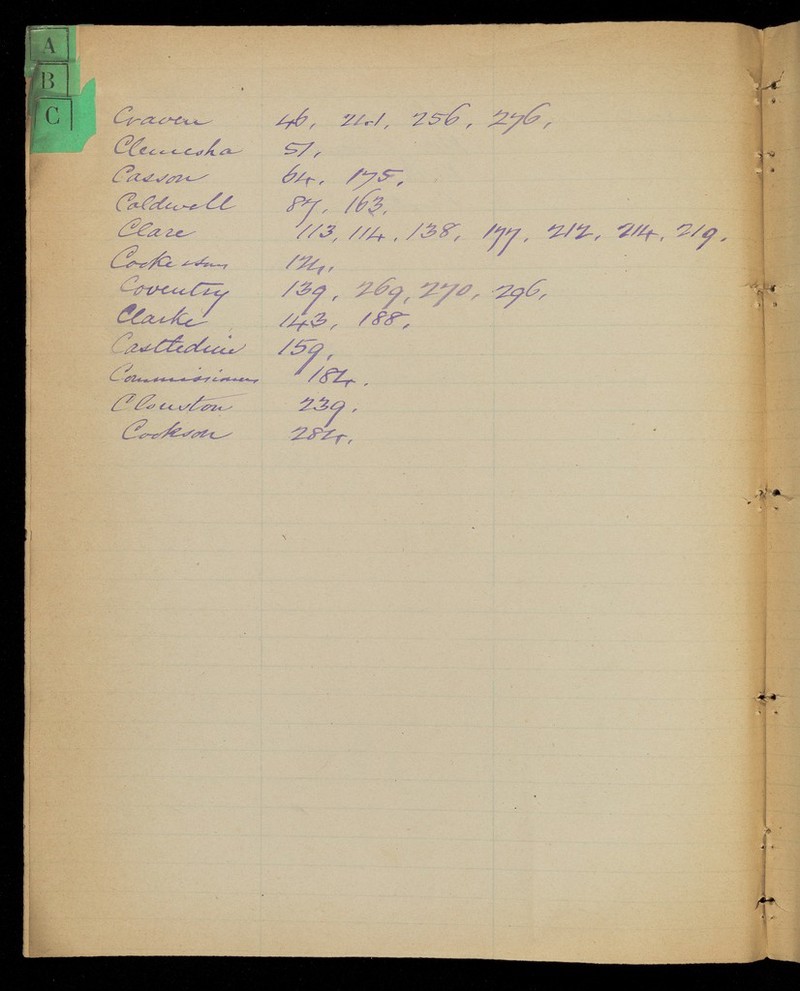 A
B
C
Craven 46, 241, 256, 276,
Clemesha 51,
Casson 64, 175,
Caldwell 87, 163,
Clare 113, 114, 138, 177, 212, 214, 219,
Cooke & Son 124,
Coventry 139, 269, 270, 296,
Clarke 143, 188,
Casttedine 159,
Commissioners 184,
Clouston 239,
Cookson 284,